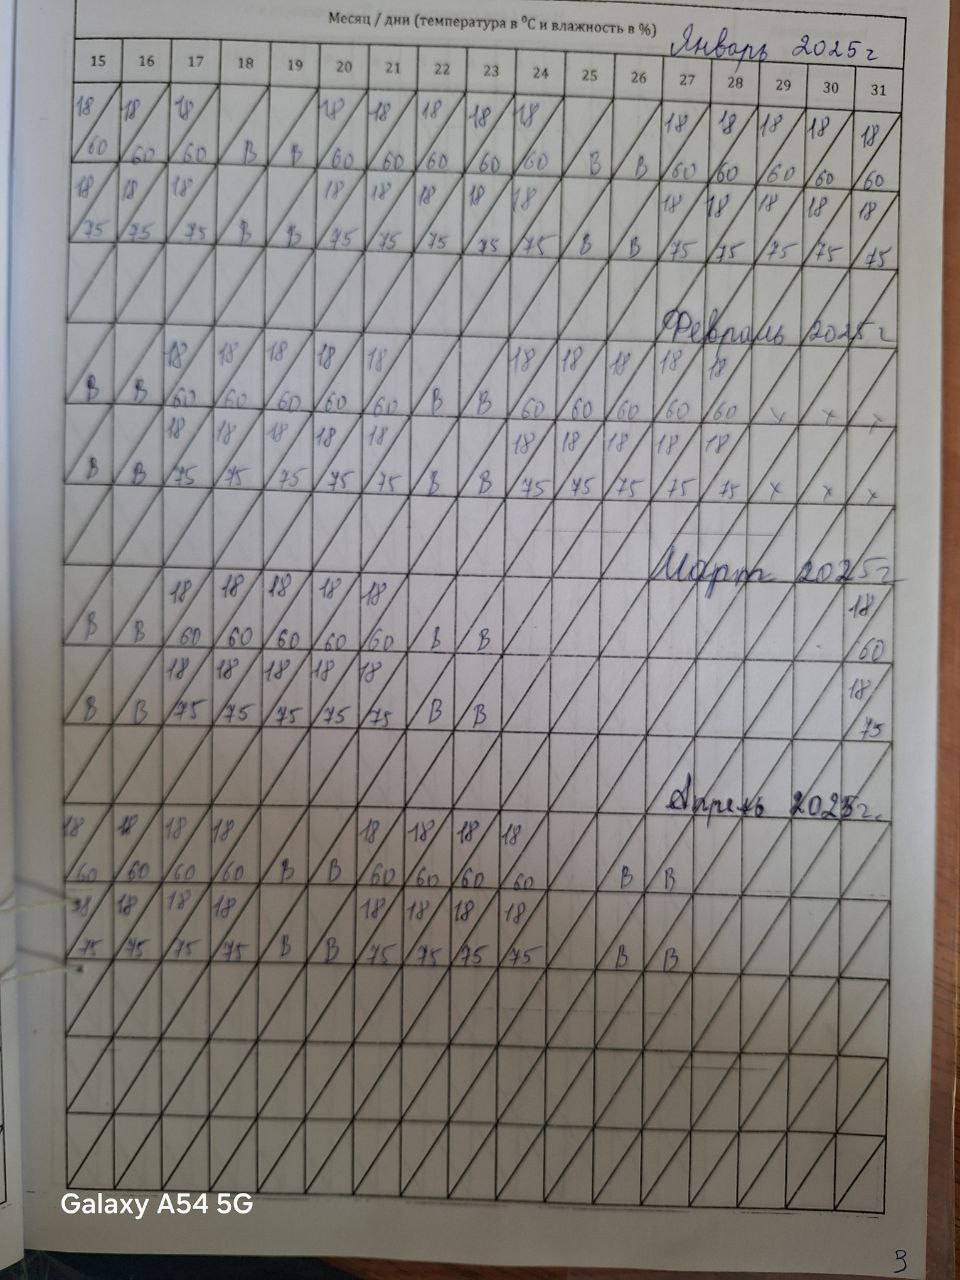 Месяц / дни (температура в ⁰С и влажность в %)
Январь 2025г
15 16 17 18 19 20 21 22 23 24 25 26 27 28 29 30 31
18 18 18 18 18 18 18 18 18 18 18 18 18
60 60 60 В В 60 60 60 60 60 В В 60 60 60 60 60
18 18 18 18 18 18 18 18 18 18 18 18 18
75 75 75 В В 75 75 75 75 75 В В 75 75 75 75 75
Февраль 2025г
18 18 18 18 18 18 18 18 18 18
В В 60 60 60 60 60 В В 60 60 60 60 60 х х х
18 18 18 18 18 18 18 18 18 18
В В 75 75 75 75 75 В В 75 75 75 75 75 х х х
Март 2025г
18 18 18 18 18 18
В В 60 60 60 60 60 В В 60
18 18 18 18 18 18
В В 75 75 75 75 75 В В 75
Апрель 2025г.
18 18 18 18 18 18 18 18
60 60 60 60 В В 60 60 60 60 В В
18 18 18 18 18 18 18
75 75 75 75 В В 75 75 75 75 В В
Galaxy A54 5G
3